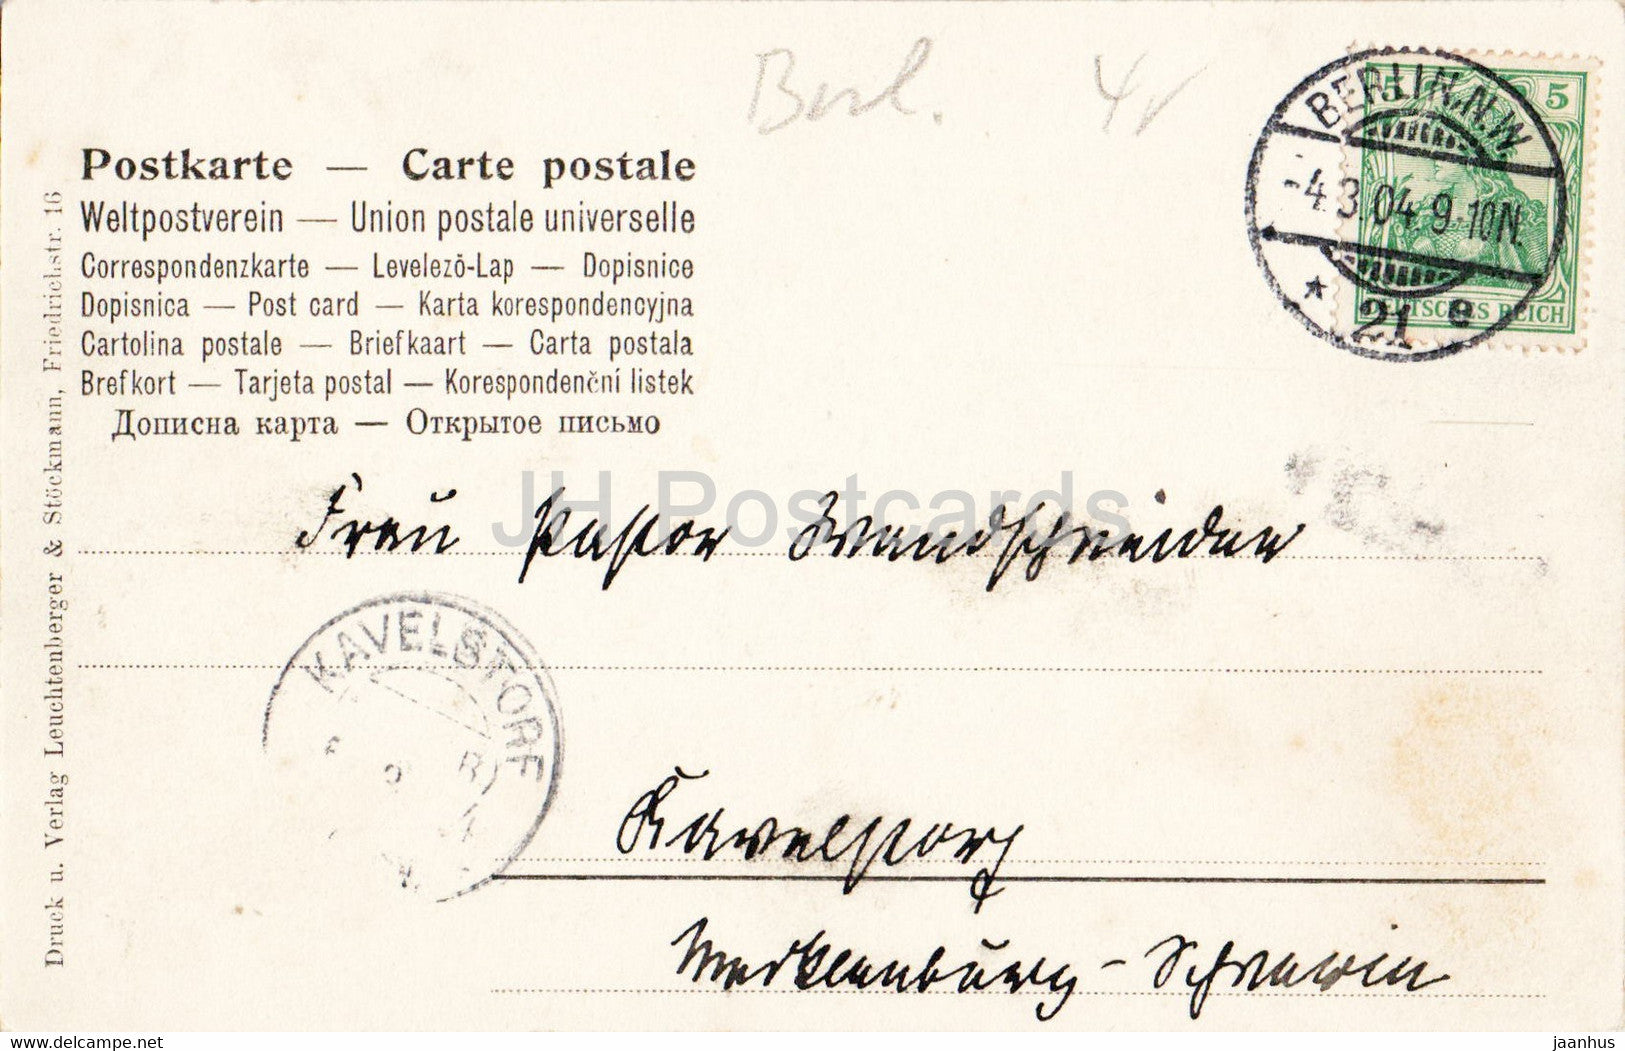 Berl. 4
5 5
DEUTSCHES REICH
BERLIN.N.W.
-4.3.04.9-10N.
* 21 e
Postkarte — Carte postale
Weltpostverein — Union postale universelle
Correspondenzkarte — Levelező-Lap — Dopisnice
Dopisnica — Post card — Karta korespondencyjna
Cartolina postale — Briefkaart — Carta postala
Brefkort — Tarjeta postal — Korespondenční listek
Дописна карта — Открытое письмо
Druck u. Verlag Leuchtenberger & Stöckmann, Friedrichstr. 16
JH Postcards
Frau Pastor Wandschneider
KAVELSTORF
Kavelstorf
Mecklenburg-Schwerin
https://www.delcampe.net
jaanhus